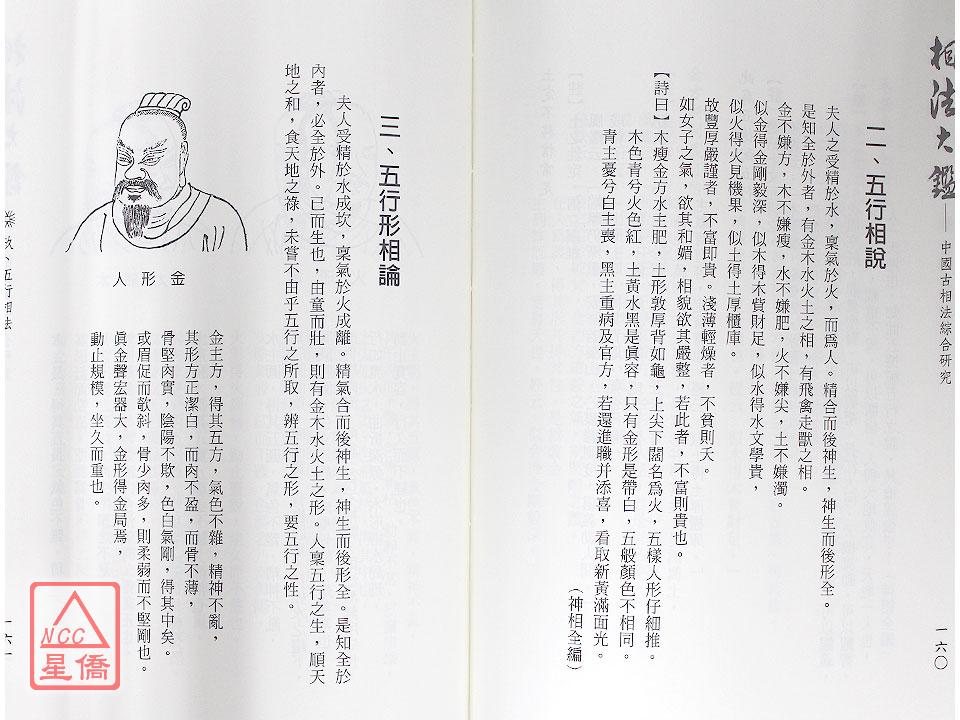 相法大鑑——中國古相法綜合研究
一六〇
二、五行相說
夫人之受精於水，稟氣於火，而爲人。精合而後神生，神生而後形全。
是知全於外者，有金木水火土之相，有飛禽走獸之相。
金不嫌方，木不嫌瘦，水不嫌肥，火不嫌尖，土不嫌濁。
似金得金剛毅深，似木得木貲財足，似水得水文學貴，
似火得火見機果，似土得土厚櫃庫。
故豐厚嚴謹者，不富即貴。淺薄輕燥者，不貧則夭。
如女子之氣，欲其和媚，相貌欲其嚴整，若此者，不富則貴也。
【詩曰】木瘦金方水主肥，土形敦厚背如龜，上尖下闊名爲火，五樣人形仔細推。
木色青兮火色紅，土黃水黑是眞容，只有金形是帶白，五般顏色不相同。
青主憂兮白主喪，黑主重病及官方，若還進職并添喜，看取新黃滿面光。
（神相全編）
三、五行形相論
夫人受精於水成坎，稟氣於火成離。精氣合而後神生，神生而後形全。是知全於
內者，必全於外。已而生也，由童而壯，則有金木水火土之形。人稟五行之生，順天
地之和，食天地之祿，未嘗不由乎五行之所取，辨五行之形，要五行之性。
人形金
金主方，得其五方，氣色不雜，精神不亂，
其形方正潔白，而肉不盈，而骨不薄，
骨堅肉實，陰陽不欺，色白氣剛，得其中矣。
或眉促而欹斜，骨少肉多，則柔弱而不堅剛也。
眞金聲宏器大，金形得金局焉，
動止規模，坐久而重也。
五行相法
一六一
NCC
星僑